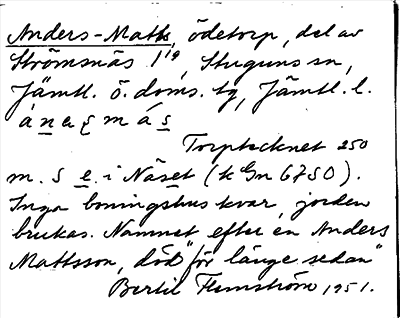 Anders-Matts, ödetorp, del av
Strömsnäs 1¹⁹, Stuguns sn,
Jämtl. ö. doms. tg, Jämtl. l.
a n e ș m á s
Torptecknet 250
m. S e. i Näset (k Gn 6750).
Inga boningshus kvar, jorden
brukas. Namnet efter en Anders
Mattsson, död "för länge sedan"
Bertil Flemström 1951.